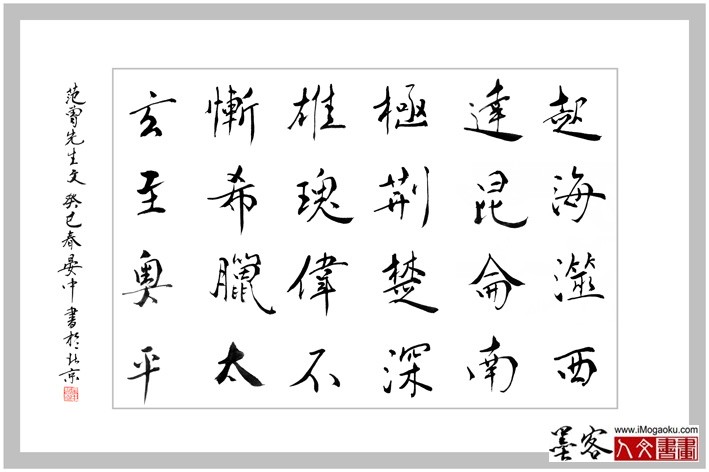 起海澨西
達昆侖南
極荊楚深
雄瑰偉不
慚希臘太
玄至奧平
范曾先生文 癸巳春晏中書於北京
墨客
www.iMogaoku.com
人文書畫